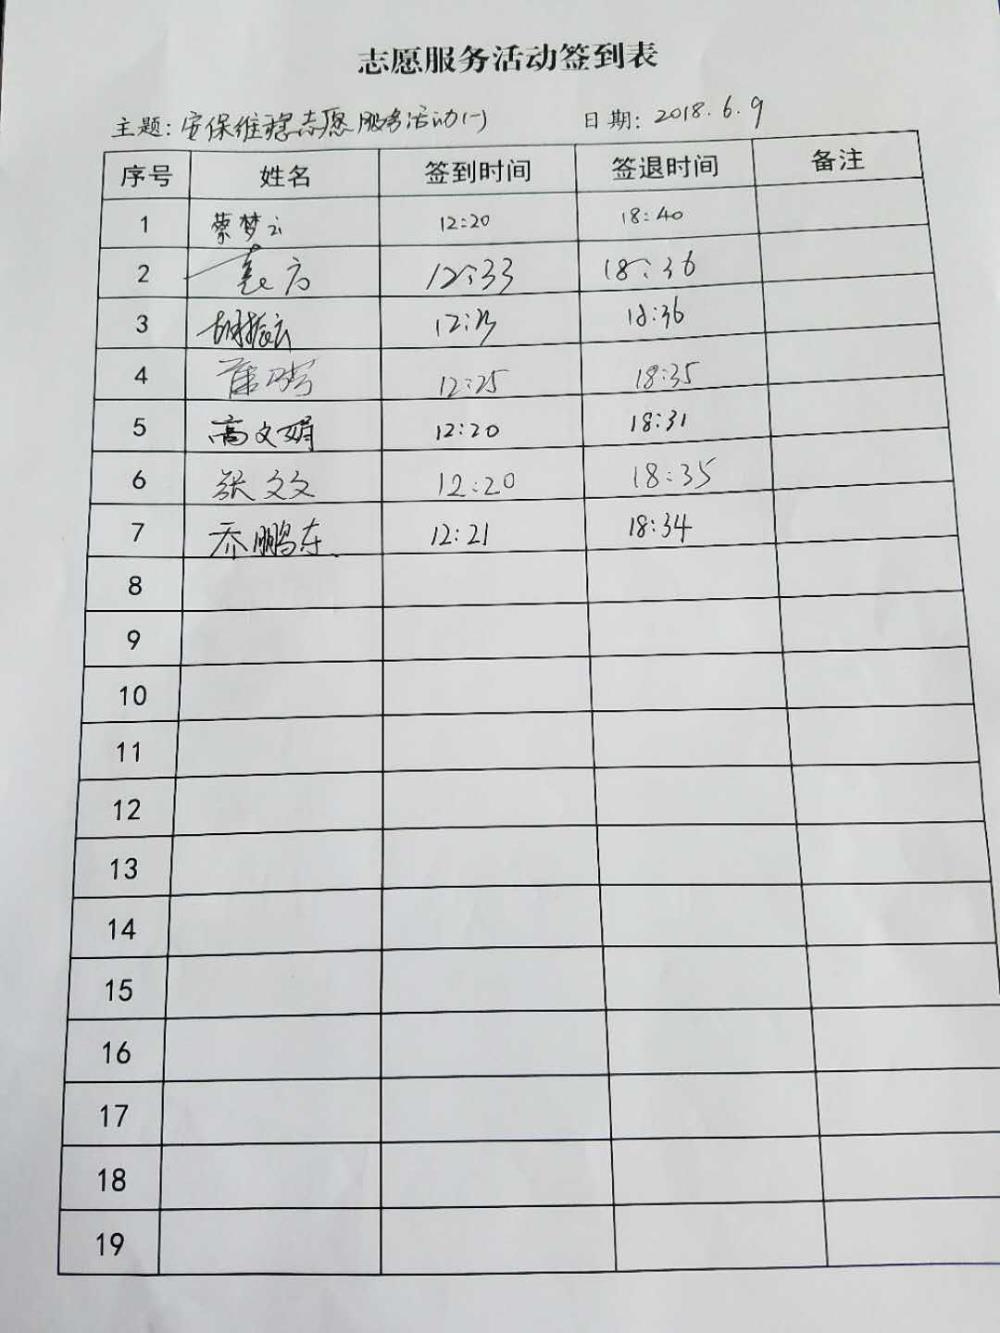 志愿服务活动签到表
主题: 安保维稳志愿服务活动(一) 日期: 2018.6.9
序号 姓名 签到时间 签退时间 备注
1 蔡梦云 12:20 18:40
2 袁方 12:33 18:36
3 胡振云 18:36
4 12:25 18:35
5 高文娟 12:20 18:31
6 张文文 12:20 18:35
7 乔鹏东 12:21 18:34
8
9
10
11
12
13
14
15
16
17
18
19